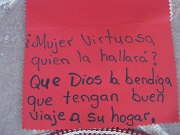 ¡Mujer Virtuosa
quien la hallará?
Que Dios la bendiga
que tengan buen
viaje a su hogar.